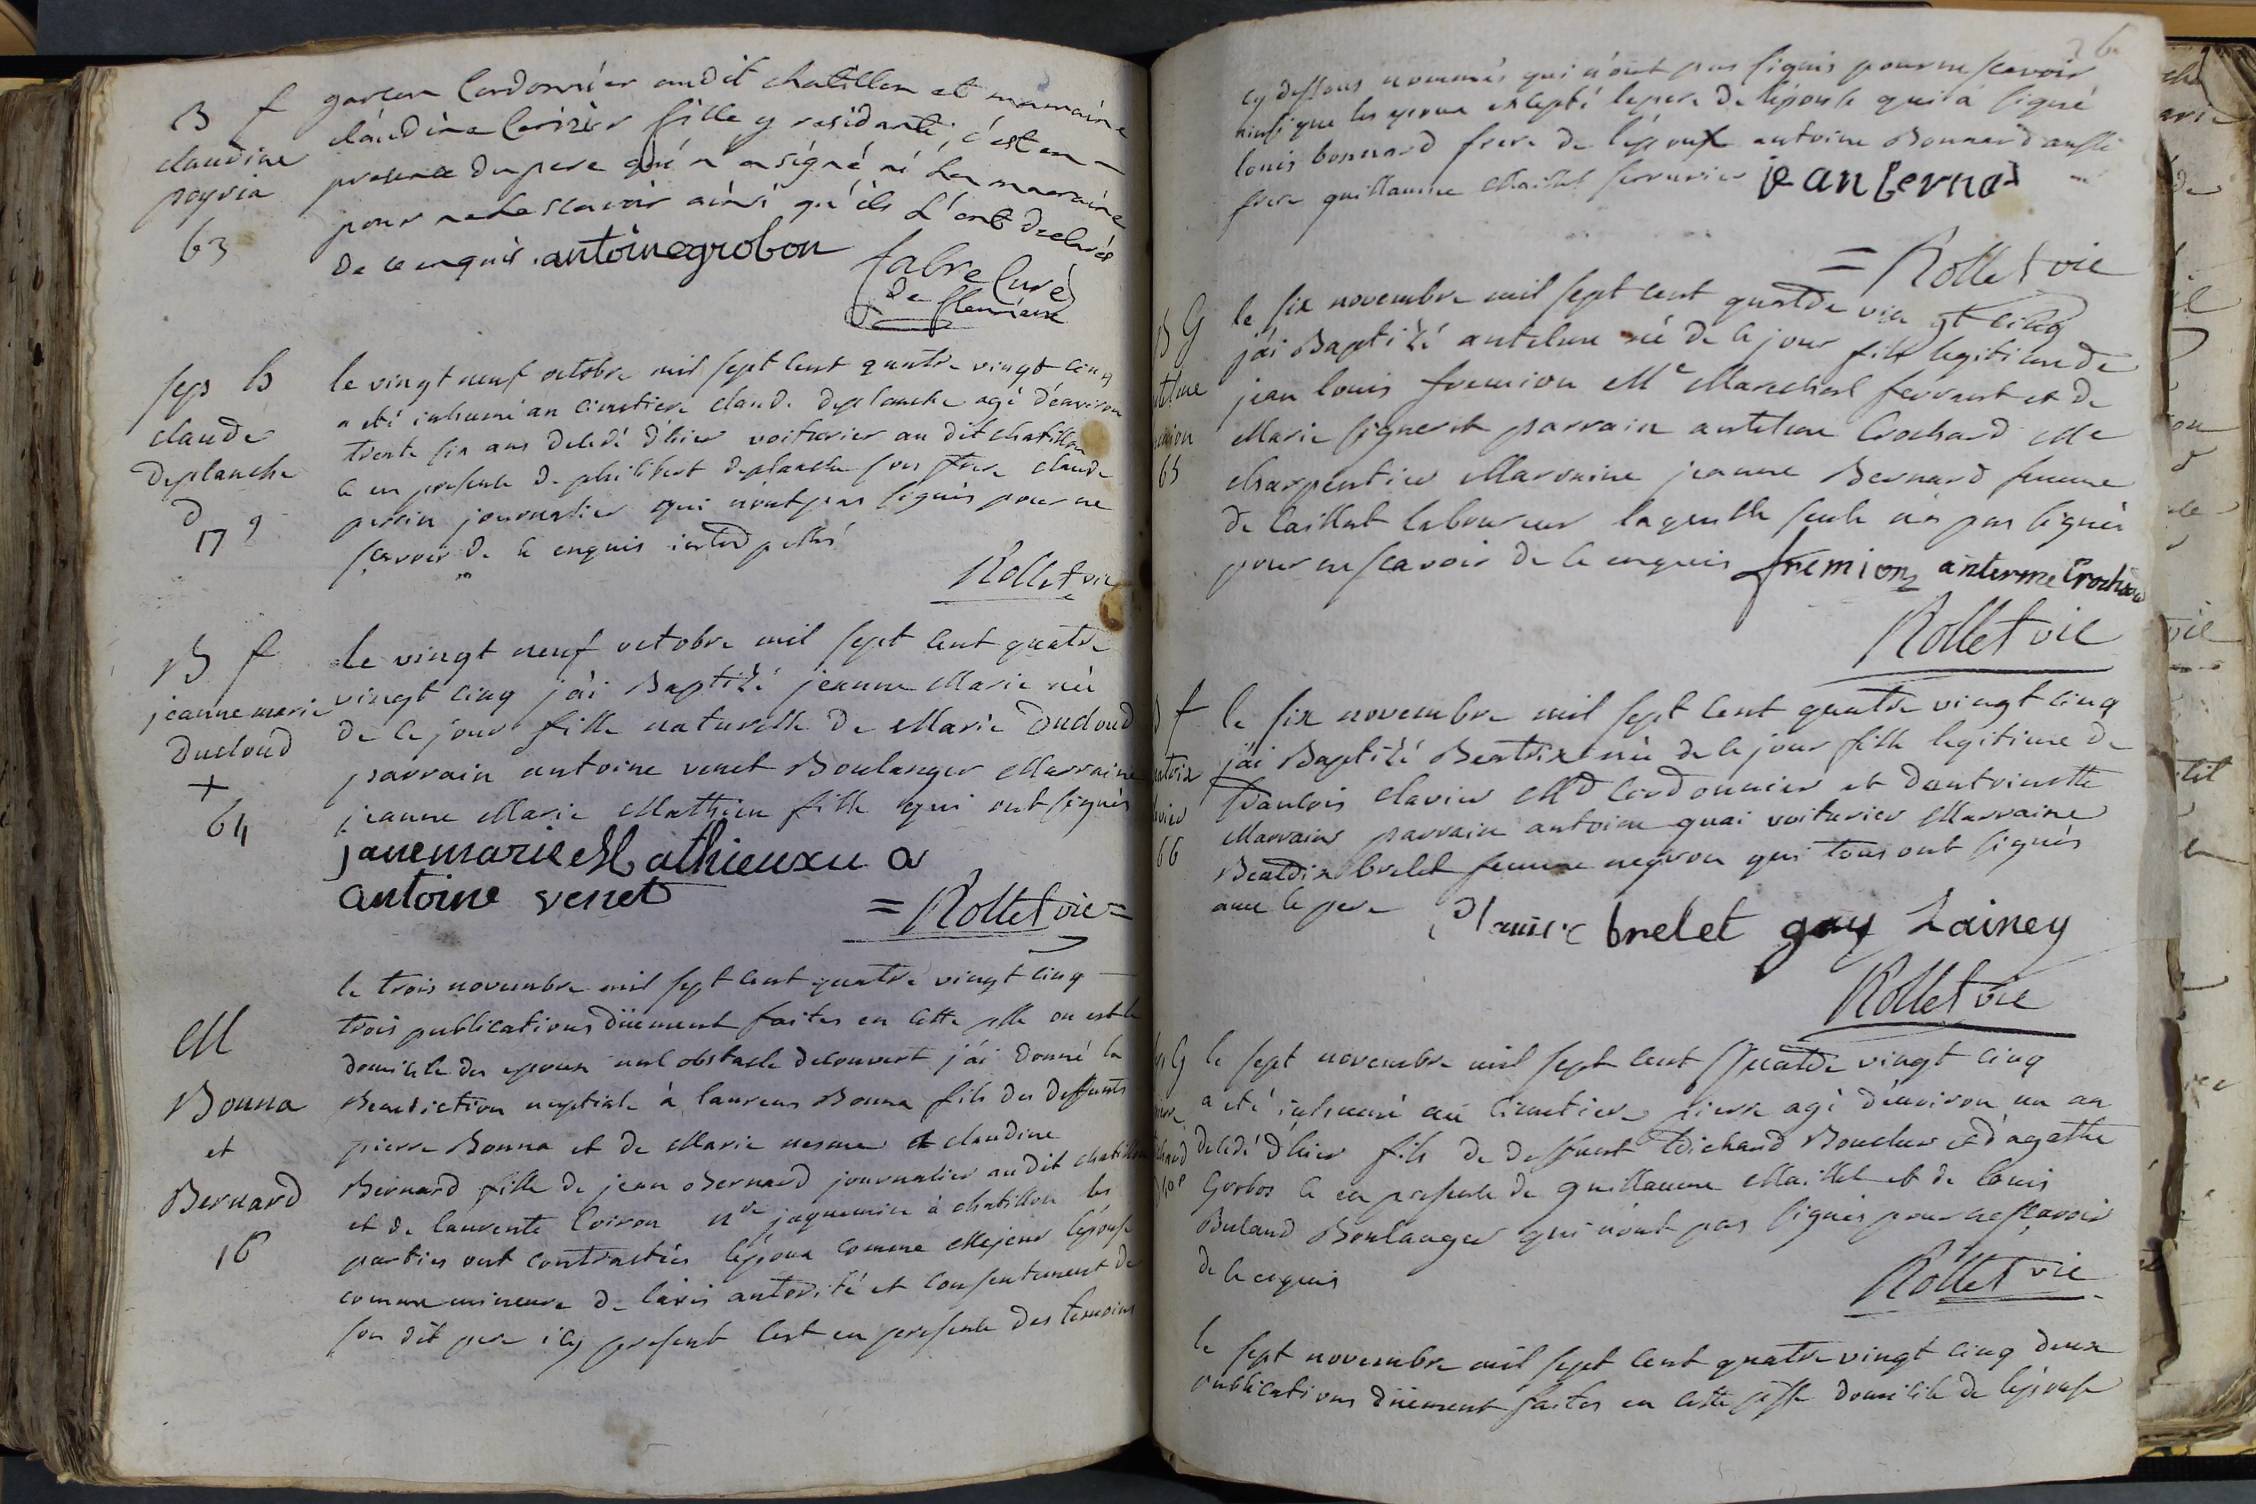 B f
claudine
peyria
63
garcon Cordonnier audit chatillon et marraine
claudine Cerisier fille y residante, c'est en
presence du pere qui n'a signé ni la marraine
pour ne le scavoir ainsi qu'ils l'ont declarés
de ce enquis. antoine grobon
fabre Curé
de fleurieux
sep b
claude
deplanche
d
17 9
le vingt neuf octobre mil sept cent quatre vingt cinq
a été inhumé au cimetiere claude deplanche agé d'environ
trente six ans decedé d'hier voiturier au dit chatillon
ce en presence de philibert deplanche son frere claude
perrin journalier qui n'ont pas signés pour ne
scavoir de ce enquis interpellés
Rollet vic
B f
jeanne marie
ducloud
+
64
le vingt neuf octobre mil sept cent quatre
vingt cinq j'ai Baptizé jeanne Marie née
de ce jour fille naturelle de Marie Ducloud
parrain antoine venet Boulanger Marraine
jeanne Marie Mathieu fille qui ont signés
jane marie Mathieu
antoine venet
= Rollet vic =
M
Bonna
et
Bernard
16
le trois novembre mil sept cent quatre vingt cinq
trois publications düement faites en cette psse ou est le
domicile des epoux nul obstacle decouvert j'ai donné la
Benediction nuptiale à laurens Bonna fils des deffunts
pierre Bonna et de Marie mesme et claudine
Bernard fille de jean Bernard journalier audit chatillon
et de laurente Coiron jaquemin à chatillon les
parties ont contractées l'epoux comme Majeur l'epouse
comme mineure de l'avis autorité et consentement de
son dit pere icy present c'est en presence des temoins
cy dessous nommés qui n'ont pas signés pour ne scavoir
ainsi que les epoux excepté le pere de l'epouse qui a signé
louis bonnard frere de l'epoux antoine Bonnard aussi
frere guillaume Maillet serrurier jean Bernad
= Rollet vic
B G
65
le six novembre mil sept cent quatre vingt cinq
j'ai Baptizé antelme né de ce jour fils legitime de
jean louis fremion Me Marechal ferrant et de
Marie Signeret parrain antelme Crochard Me
charpentier Marraine jeanne Bernard femme
de Caillat laboureur laquelle seule n'a pas signés
pour ne scavoir de ce enquis fremion anterme Crochard
Rollet vic
f
66
le six novembre mil sept cent quatre vingt cinq
j'ai Baptizé Beatrix née de ce jour fille legitime de
francois clavier Md Cordonnier et d'antoinette
Marrain parrain antoine quai voiturier Marraine
Beatrix brelet femme negron qui tous ont signés
avec le pere
brelet gay Lainey
Rollet vic
G
le sept novembre mil sept cent quatre vingt cinq
a eté inhumé au cimetiere pierre agé d'environ un an
decedé d'hier fils de deffunt Michaud Boucher et d'agathe
Grobos ce en presence de guillaume Maillet et de louis
Buland Boulanger qui n'ont pas signés pour ne scavoir
de ce enquis
Rollet vic
le sept novembre mil sept cent quatre vingt cinq deux
publications düement faites en cette psse domicile de l'epouse